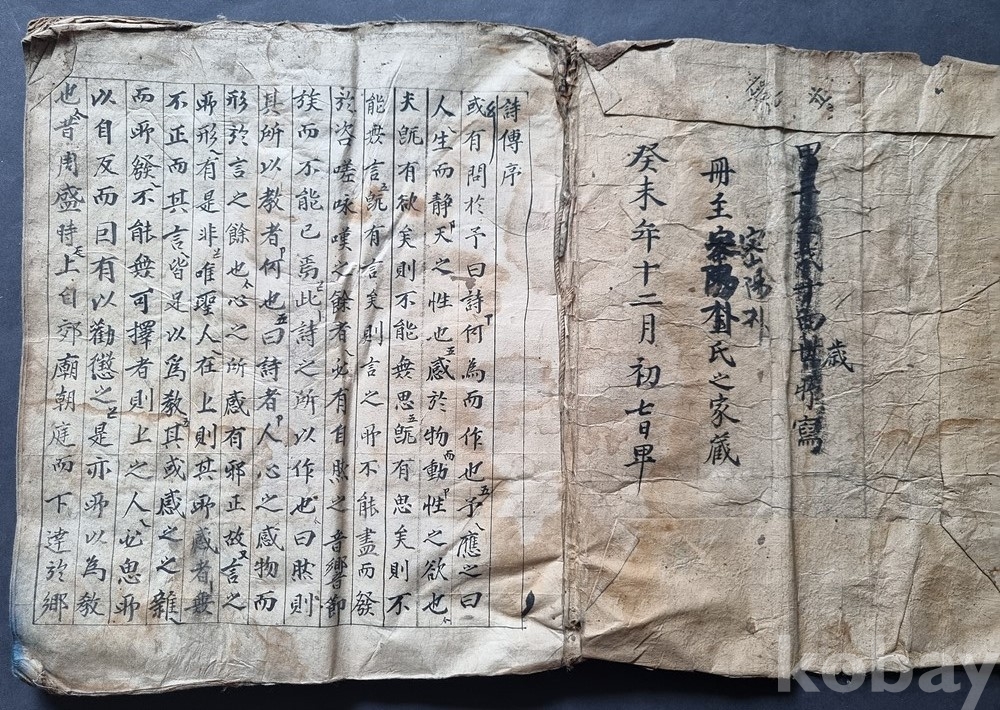 歲
寫
密陽
冊主密陽朴氏之家藏
癸未年十二月初七日畢
詩傳序
或有問於予曰詩何為而作也予應之曰
人生而静天之性也感於物而動性之欲也
夫旣有欲矣則不能無思旣有思矣則不
能無言旣有言矣則言之所不能盡而發
於咨嗟咏嘆之餘者必有自然之音響節
族而不能已焉此詩之所以作也曰然則
其所以教者何也曰詩者人心之感物而
形於言之餘也心之所感有邪正故言之
所形有是非唯聖人在上則其所感者無
不正而其言皆是以為教其或感之之雜
而所發不能無可擇者則上之人必思所
以自反而因有以勸懲之是亦所以為教
也昔周盛時上自郊廟朝庭而下達於鄉
kobay